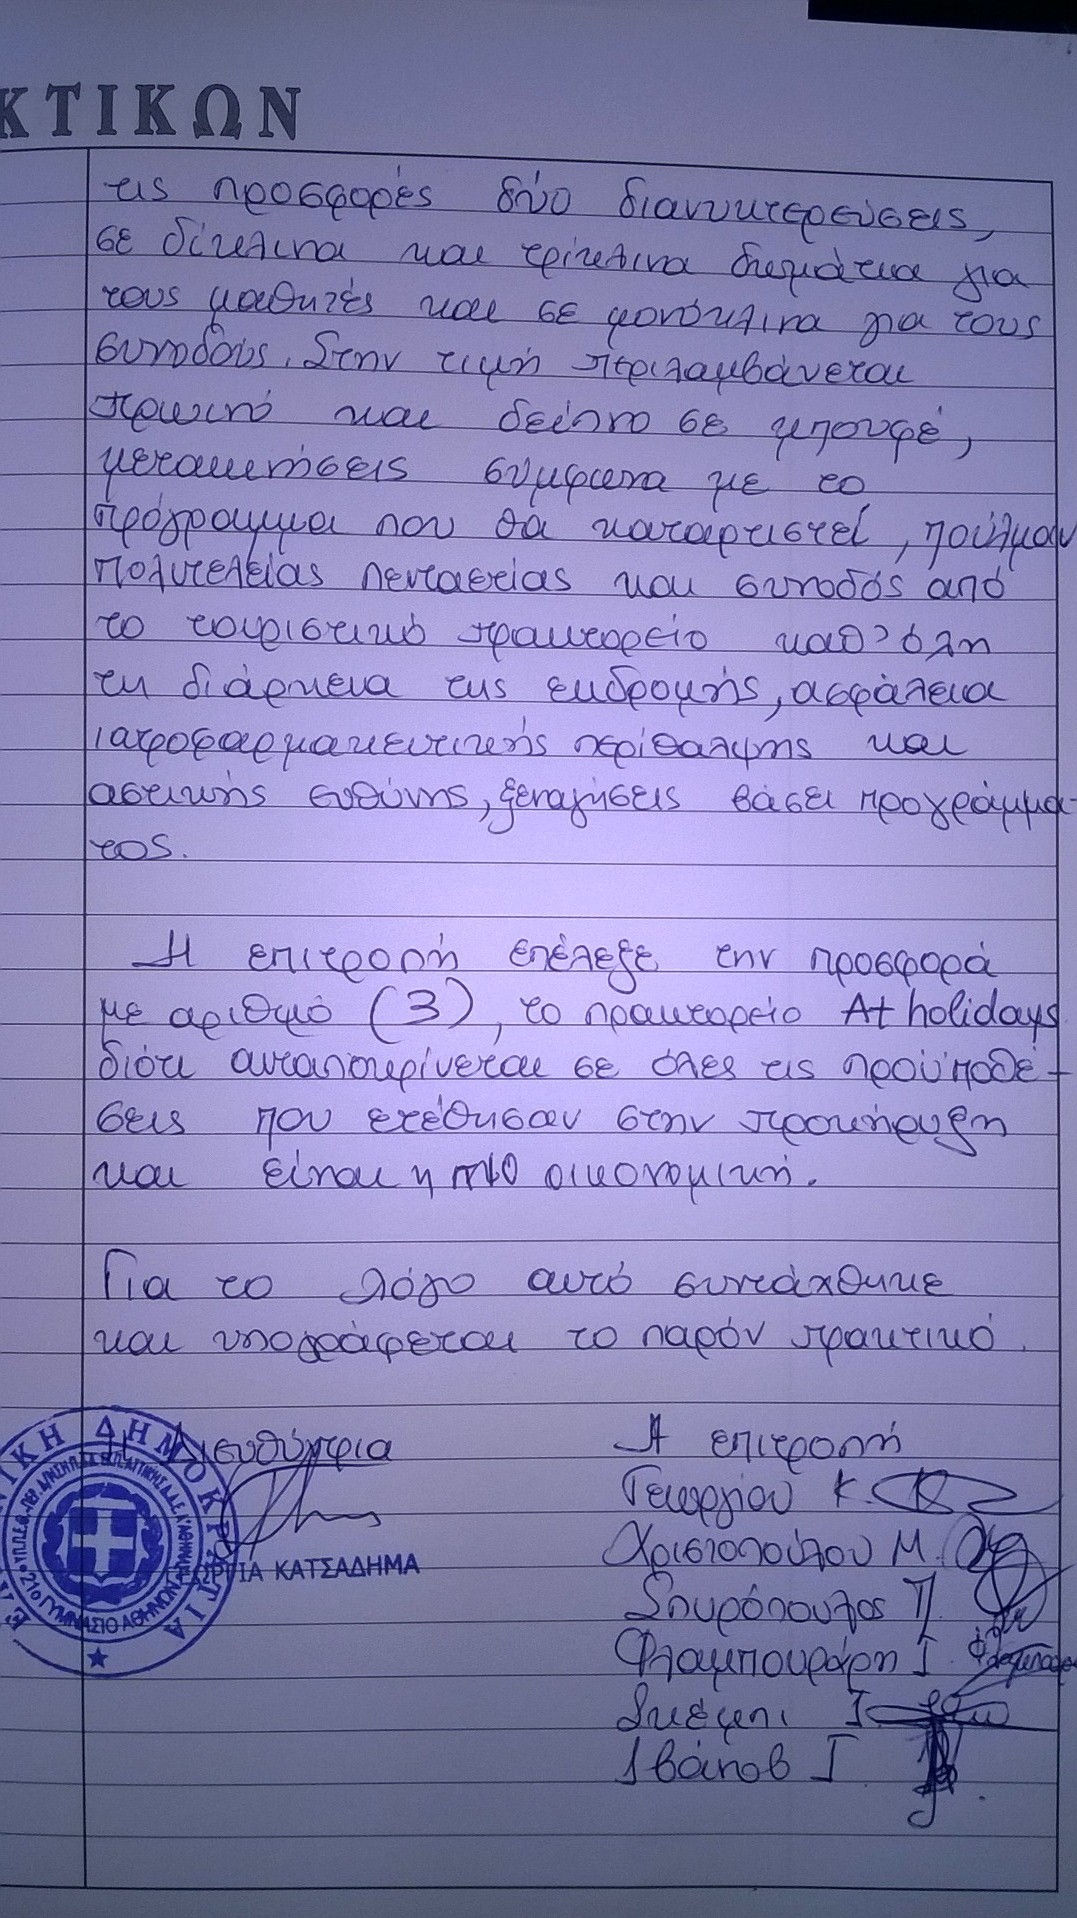 ΚΤΙΚΩΝ
τις προσφορές δύο διανυκτερεύσεις,
σε δίκλινα και τρίκλινα δωμάτια για
τους μαθητές και σε μονόκλινα για τους
συνοδούς. Στην τιμή περιλαμβάνεται
πρωινό και δείπνο σε μπουφέ,
μετακινήσεις σύμφωνα με το
πρόγραμμα που θα καταρτιστεί, πούλμαν
πολυτελείας πενταετίας και συνοδός από
το τουριστικό πρακτορείο καθ' όλη
τη διάρκεια της εκδρομής, ασφάλεια
ιατροφαρμακευτικής περίθαλψης και
αστικής ευθύνης, ξεναγήσεις βάσει προγράμμα-
τος.
Η επιτροπή επέλεξε την προσφορά
με αριθμό (3), το πρακτορείο At holidays
διότι ανταποκρίνεται σε όλες τις προϋποθέ-
σεις που ετέθησαν στην προκήρυξη
και είναι η πιο οικονομική.
Για το λόγο αυτό συντάχθηκε
και υπογράφεται το παρόν πρακτικό.
Η Διευθύντρια Η επιτροπή
Γεωργίου Κ.
Χριστοπούλου Μ.
ΚΑΤΣΑΔΗΜΑ
Σπυρόπουλος Π.
Φλαμπουράρη Ι.
Σκέμπι Ι
Ιβάνοβ Γ
21ο ΓΥΜΝΑΣΙΟ ΑΘΗΝΩΝ